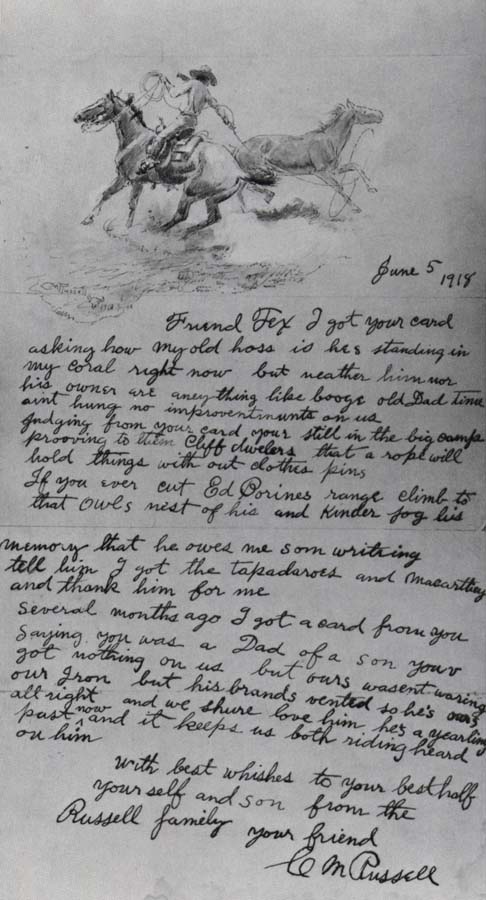 June 5 1918
Friend Tex I got your card
asking how my old hoss is hes standing in
my coral right now but neather him nor
his owner are aney thing like booze old Dad time
aint hung no improventmunts on us
Judging from your card your still in the big camp
prooving to them Cliff dwelers that a rope will
hold things with out clothes pins
If you ever cut Ed Borines range climb to
that Owls nest of his and kinder jog his
memory that he owes me som writing
tell him I got the tapadaroes and
and thank him for me
several months ago I got a card from you
saying you was a Dad of a son youv
got nothing on us but ours wasent waring
our Iron but his brands vented so he's ours
all right and we shure love him he's a yearling
past now and it keeps us both riding heard
on him
with best whishes to your best half
your self and son from the
Russell famely your friend
C M Russell